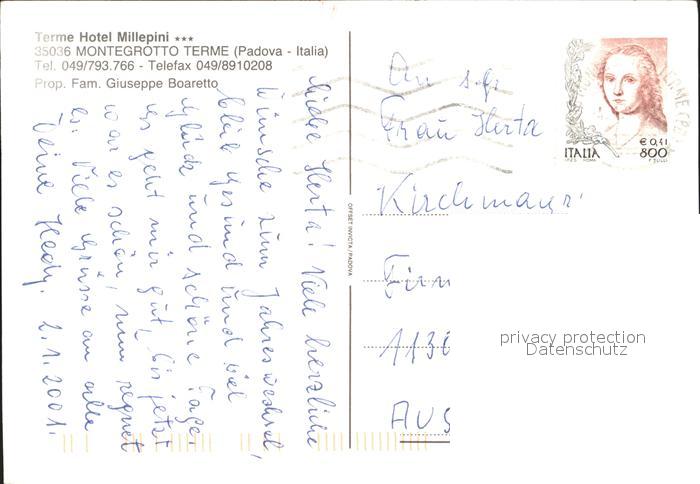 Terme Hotel Millepini ★★★
35036 MONTEGROTTO TERME (Padova - Italia)
Tel. 049/793.766 - Telefax 049/8910208
Prop. Fam. Giuseppe Boaretto
Liebe Herta! Viele herzliche
Wünsche zum Jahreswechsel,
bleib gesund und viel
Glück und schöne Tage.
Es geht mir gut, bis jetzt
war es schön, nun regnet
es. Viele Grüsse an alle
Deine Hedy. 2.1.2001.
OFFSET INVICTA PADOVA
An
Frau Herta
Kirchmayr
Firm
1130
AUS
ITALIA
€ 0,41
800
privacy protection
Datenschutz